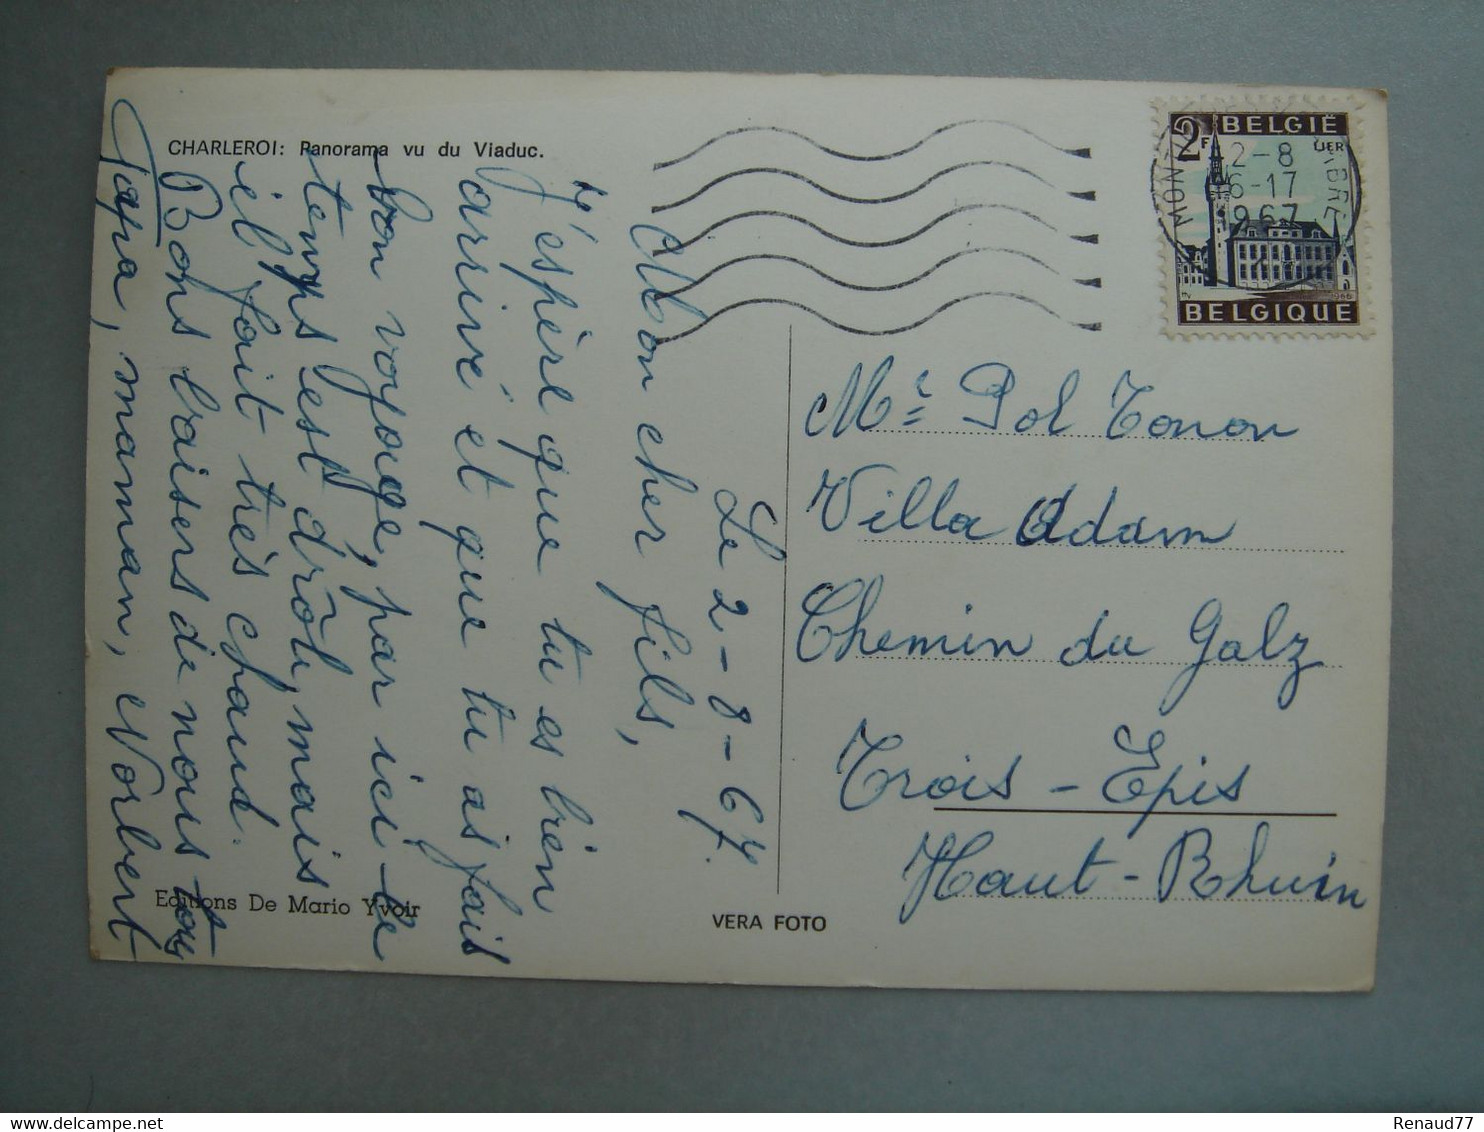 CHARLEROI: Panorama vu du Viaduc.
Le 2-8-67.
Mon cher fils,
J'espère que tu es bien
arrivé et que tu as fait
bon voyage, par ici le
temps est drôle, mais
il fait très chaud.
Bons baisers de nous tous
Papa, maman, Norbert
Editions De Mario Yvoir
VERA FOTO
BELGIË
2F
LIER
1966
BELGIQUE
MONT
2-8
16-17
1967
Mr Pol Tonon
Villa Adam
Chemin du Galz
Trois-Epis
Haut-Rhuin
Renaud77